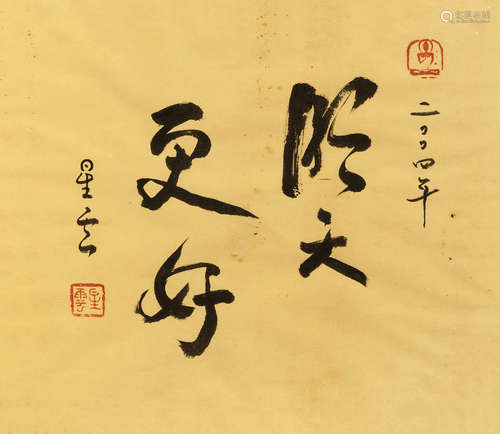 二〇〇四年
明天
更好
星云
星雲